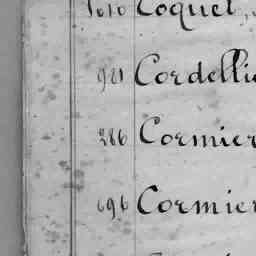 1010 Coquel,
981 Cordellie
286 Cormier
696 Cormier